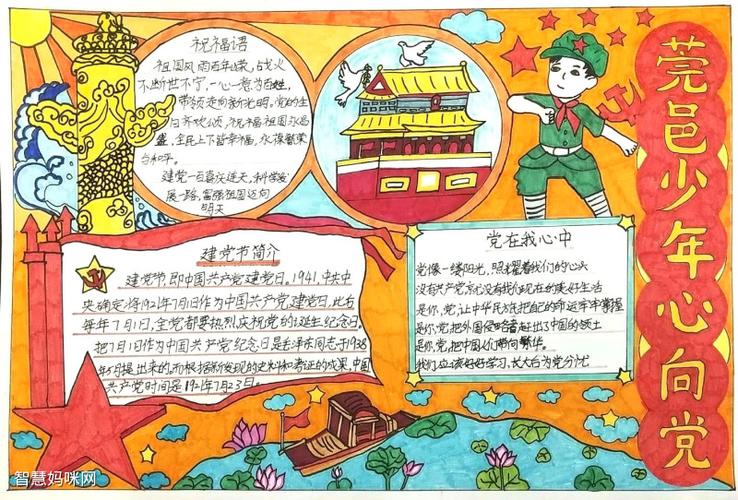 祝福语
祖国风雨百年峻,战火
不断世不宁,一心一意为百姓,
带领走向新光明,党的生
日齐欢颂,祝福祖国永昌
盛,全民上下皆幸福,永葆繁荣
与和平。
建党一百喜庆连天,科学发
展一路,富强祖国迈向
明天
建党节简介
建党节,即中国共产党建党日。1941,中共中
央确定将1921年7月1日作为中国共产党建党日,此后
每年7月1日,全党都要热烈庆祝党的诞生纪念日。
把7月1日作为中国共产党纪念日是毛泽东同志于1938
年5月提出来的,而根据新发现的史料和考证的成果,中国
共产党时间是1921年7月23日。
党在我心中
党像一缕阳光,照耀着我们的心头
没有共产党就没有我们现在的美好生活
是你,党,让中华民族把自己的命运牢牢掌握
是你,党,把外国侵略者赶出了中国的领土
是你,党,把中国人们带向繁华。
我们应该好好学习,长大后为党分忧
莞邑少年心向党
智慧妈咪网